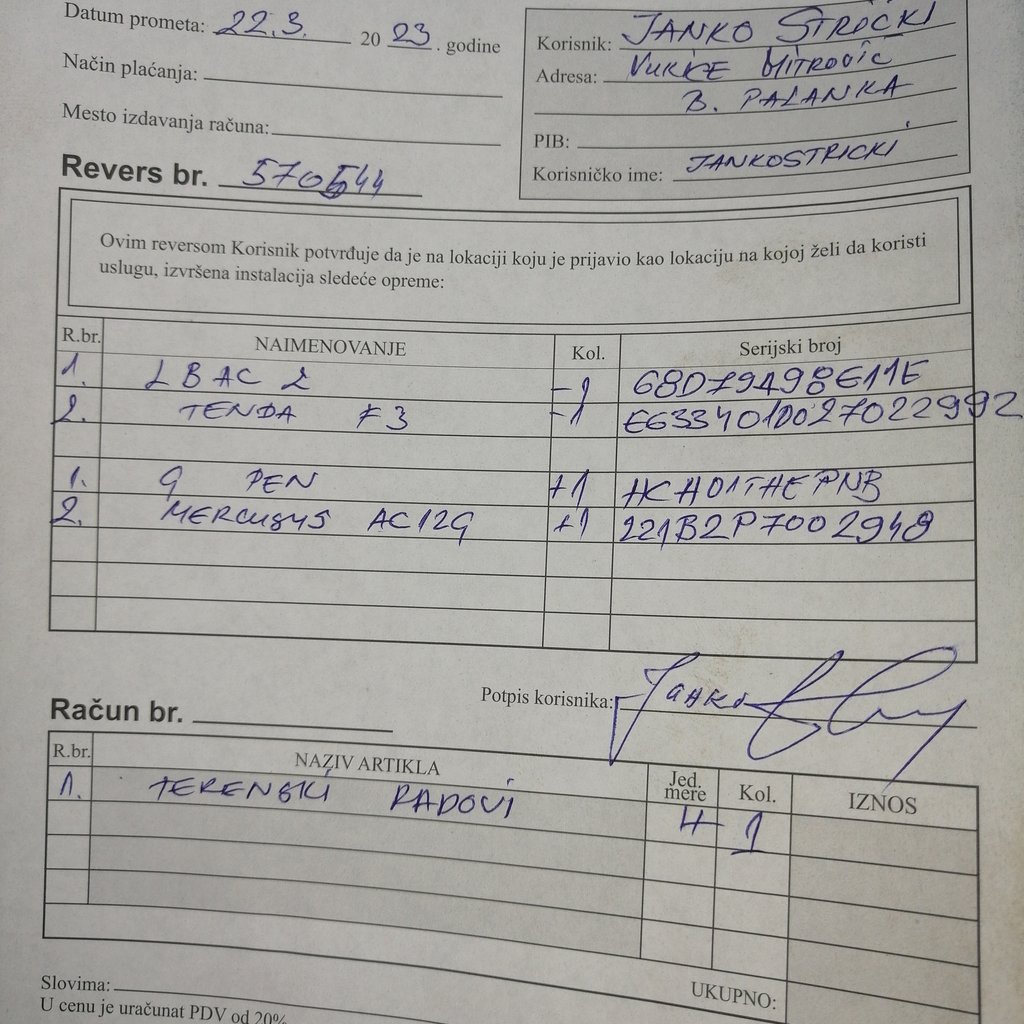 Datum prometa: 22.3. 20 23. godine
Način plaćanja:
Mesto izdavanja računa:
Korisnik: JANKO STRIČKI
Adresa: VUKICE MITROVIĆ
B. PALANKA
PIB:
Korisničko ime: JANKOSTRICKI
Revers br. 570544
Ovim reversom Korisnik potvrđuje da je na lokaciji koju je prijavio kao lokaciju na kojoj želi da koristi
uslugu, izvršena instalacija sledeće opreme:
R.br. NAIMENOVANJE Kol. Serijski broj
1. LBAC 2 -1 68D79498E11E
2. TENDA F3 -1 E6334010027022992
1. G PEN +1 HCH01THEPNB
2. MERCUSYS AC12G +1 221B2P7002948
Potpis korisnika: Janko
Račun br.
R.br. NAZIV ARTIKLA Jed. mere Kol. IZNOS
1. TERENSKI RADOVI H 1
UKUPNO:
Slovima:
U cenu je uračunat PDV od 20%